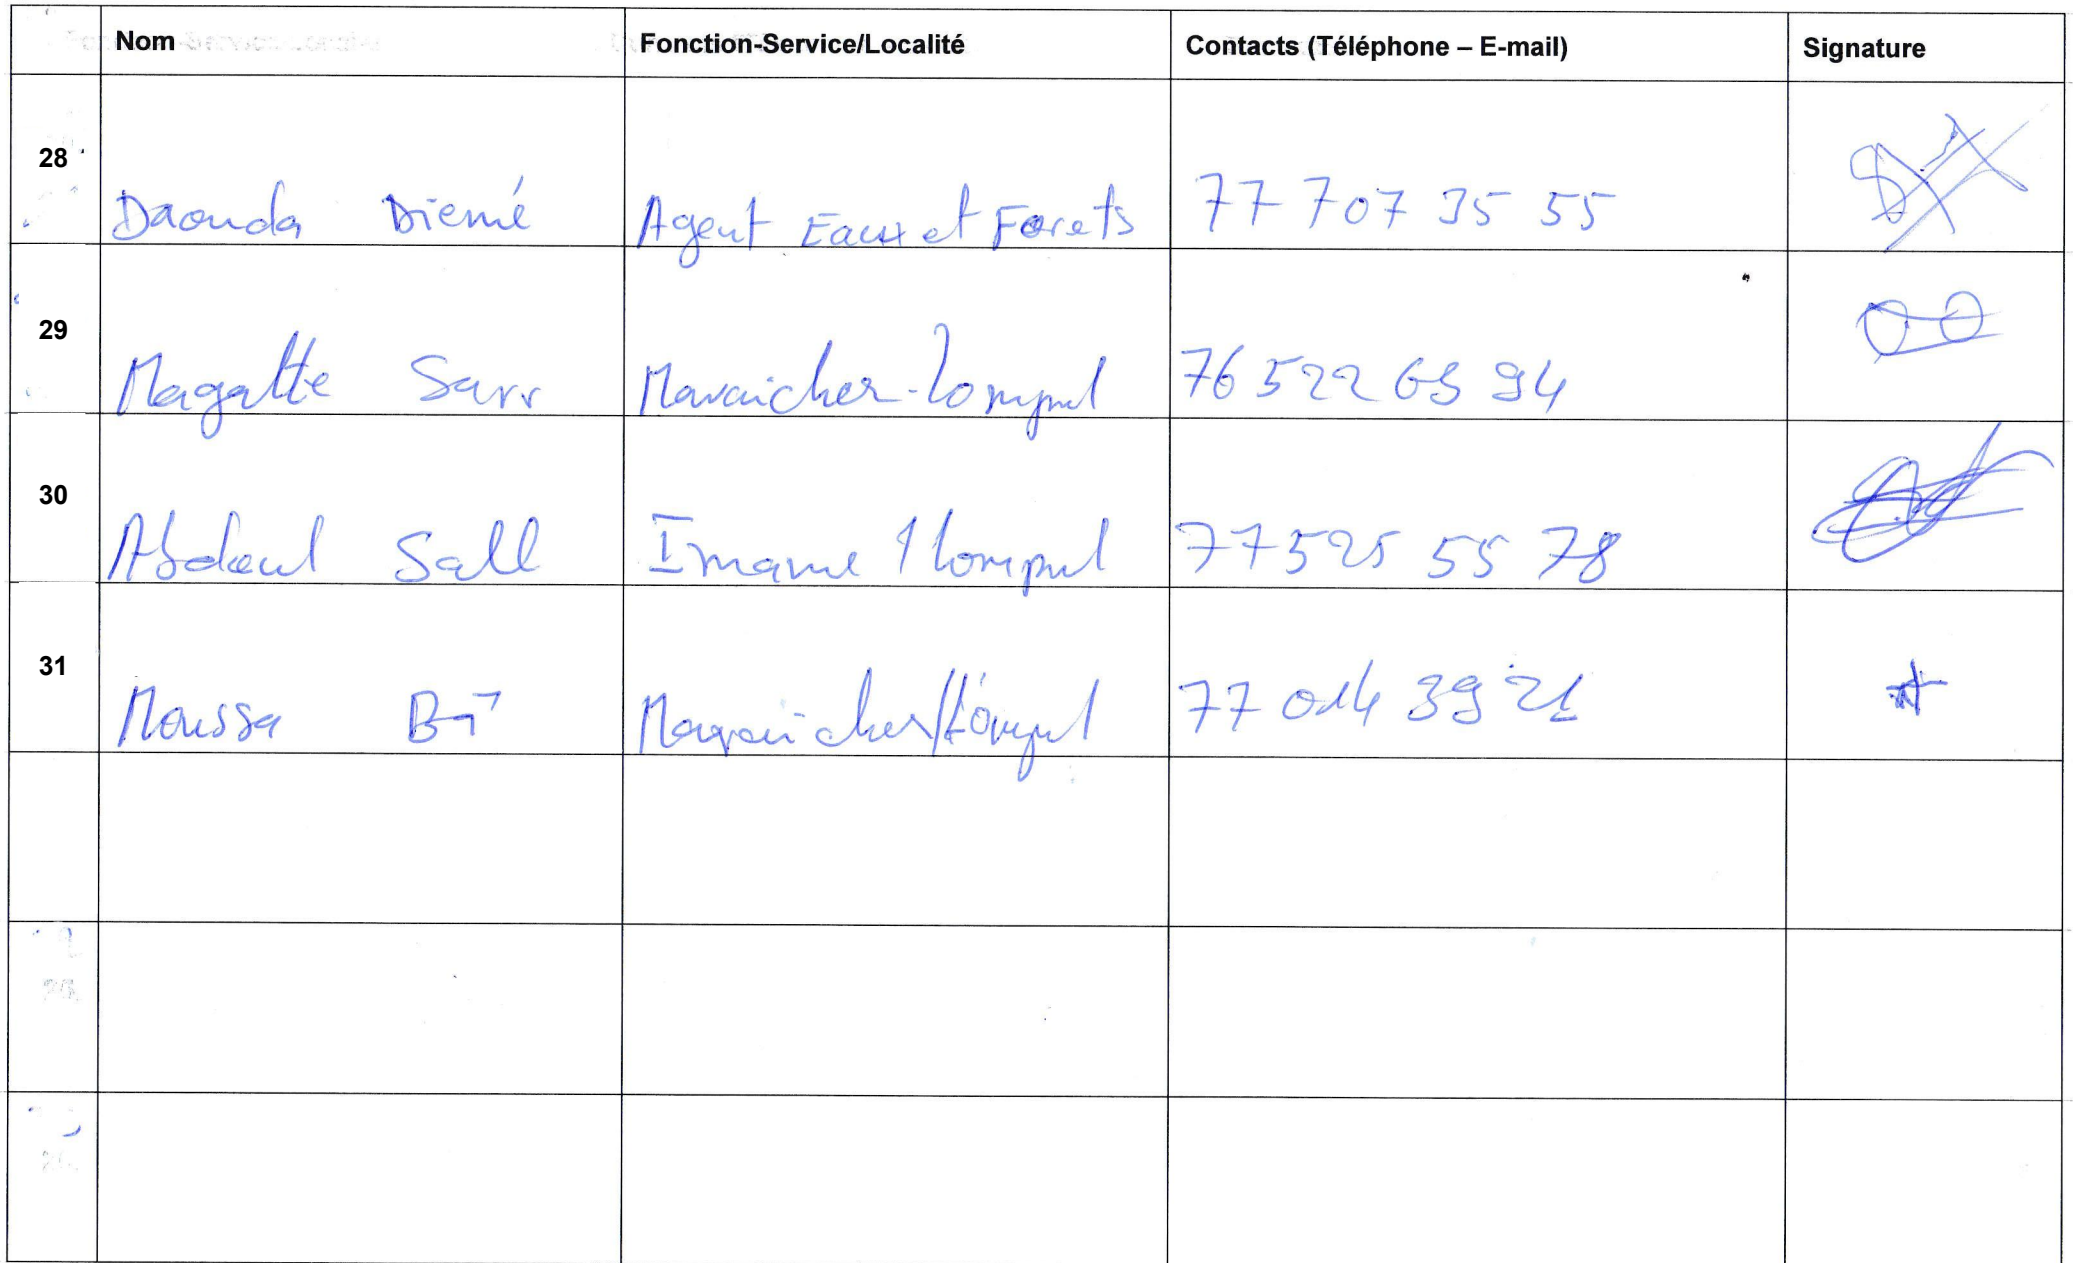 Nom Fonction-Service/Localité Contacts (Téléphone – E-mail) Signature
28 Daouda Diemé Agent Eaux et Forets 77 707 35 55
29 Magatte Sarr Maraicher-Lompul 76 522 69 94
30 Abdoul Sall Imame / lompul 77 525 55 78
31 Moussa Ba Maraicher/Lompul 77 014 39 21